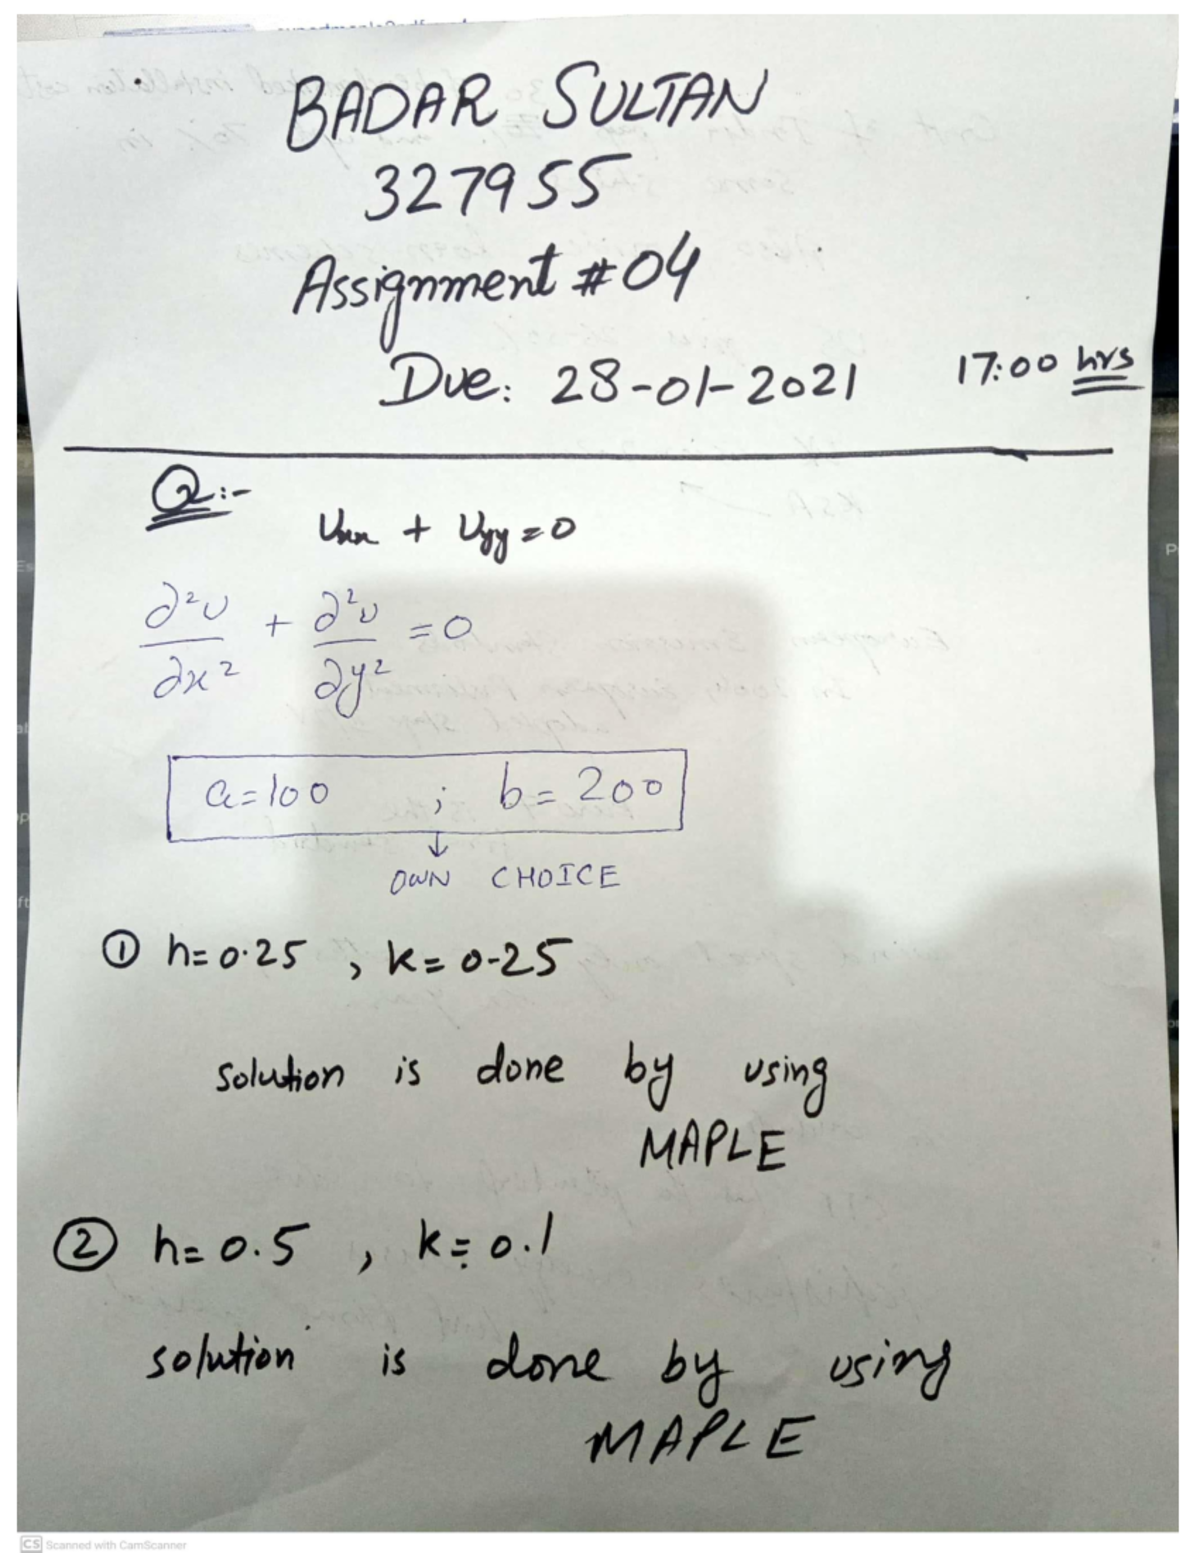 BADAR SULTAN
327955
Assignment #04
Due: 28-01-2021 17:00 hrs
Q:-
Uxx + Uyy = 0
∂²U/∂x² + ∂²U/∂y² = 0
a=100 ; b=200
↓
OWN CHOICE
① h=0.25 , k=0.25
solution is done by using
MAPLE
② h=0.5 , k=0.1
solution is done by using
MAPLE
CS Scanned with CamScanner